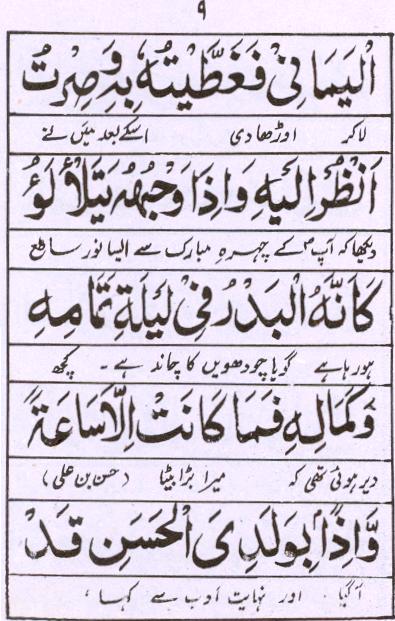 ۹
الْيَمَانِيْ فَغَطَّيْتُهٗ بِهٖ وَصِرْتُ
لاکر اوڑھا دی اسکے بعد میں نے
اَنْظُرُ اِلَيْهِ وَاِذَا وَجْهُهٗ يَتَلَأْلَؤُ
دیکھا کہ آپؐ کے چہرہ مبارک سے ایسا نور ساطع
كَاَنَّهُ الْبَدْرُ فِيْ لَيْلَةِ تَمَامِهٖ
ہورہا ہے گویا چودھویں کا چاند ہے۔ کچھ
وَكَمَالِهٖ فَمَا كَانَتْ اِلَّا سَاعَةً
دیر ہوئی تھی کہ میرا بڑا بیٹا (حسن بن علی)
وَّاِذًا بِوَلَدِيَ الْحَسَنِ قَدْ
آگیا اور نہایت ادب سے کہا،